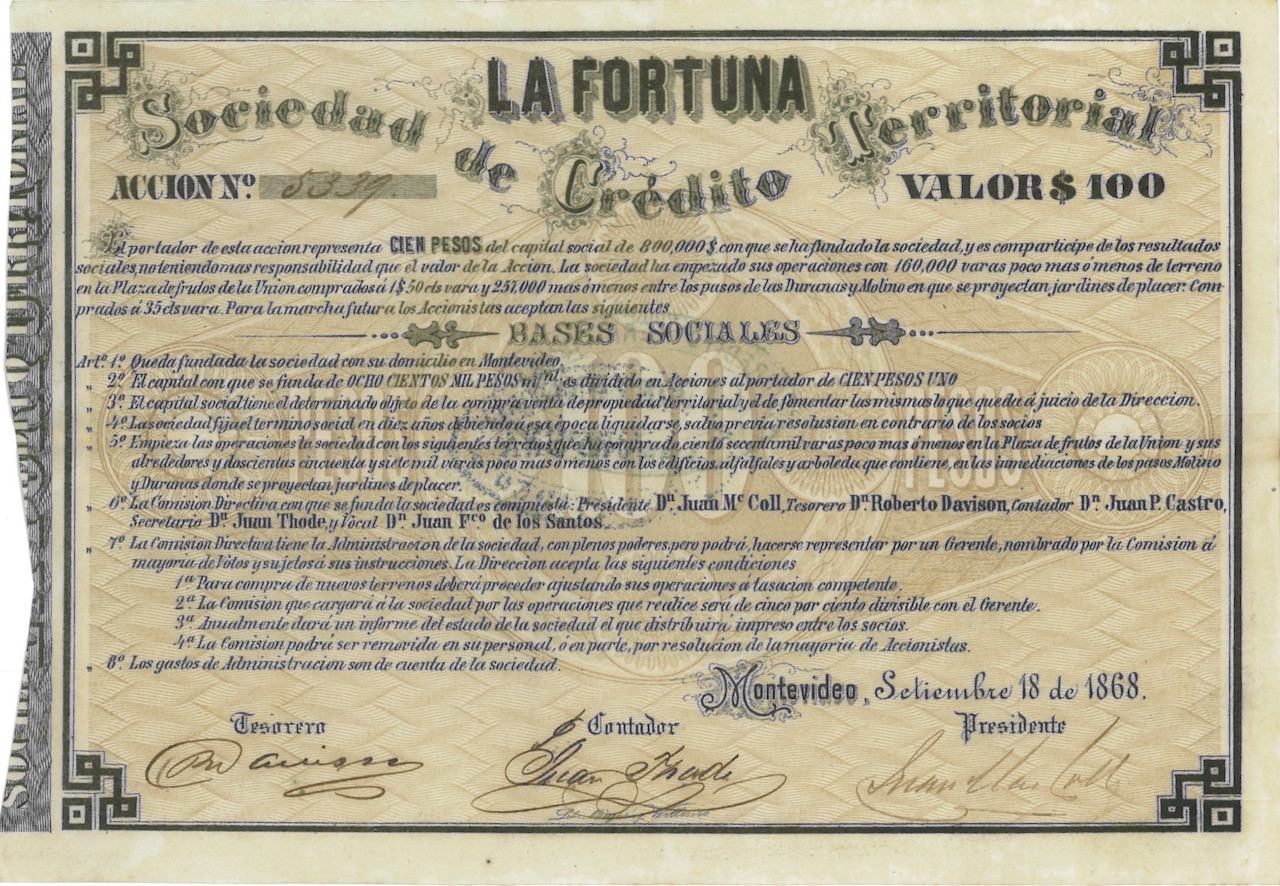 LA FORTUNA
Sociedad de Crédito Territorial
ACCION Nº. 5339.
VALOR $ 100
El portador de esta accion representa CIEN PESOS del capital social de 800,000 $ con que se ha fundado la sociedad, y es comparticipe de los resultados
sociales, no teniendo mas responsabilidad que el valor de la Accion. La sociedad ha empezado sus operaciones con 160,000 varas poco mas ó menos de terreno
en la Plaza de frutos de la Union comprados á 1$ 50 cts vara y 257,000 mas ó menos entre los pasos de las Duranas y Molino en que se proyectan jardines de placer. Com
prados á 35 cts vara. Para la marcha futura los Accionistas aceptan las siguientes
BASES SOCIALES
Artº. 1º. Queda fundada la sociedad con su domicilio en Montevideo
„ 2º. El capital con que se funda de OCHO CIENTOS MIL PESOS m/nl as dividido en Acciones al portador de CIEN PESOS UNO
„ 3º. El capital social tiene el determinado objeto de la compra venta de propiedad territorial y el de fomentar las mismas lo que queda á juicio de la Direccion.
„ 4º. La sociedad fija el termino social en diez años debiendo á esa época liquidarse, salvo previa resolusion en contrario de los socios
„ 5º. Empieza las operaciones la sociedad con los siguientes terrenos que ha comprado ciento secenta mil varas poco mas ó menos en la Plaza de frutos de la Union y sus
alrededores y doscientas cincuenta y siete mil varas poco mas ó menos con los edificios, alfalfales y arboleda que contiene, en las inmediaciones de los pasos Molino
y Duranas donde se proyectan jardines de placer.
„ 6º. La Comision Directiva con que se funda la sociedad es compuesta: Presidente Dn. Juan Mc Coll, Tesorero Dn. Roberto Davison, Contador Dn. Juan P. Castro,
Secretario Dn. Juan Thode, y Vocal Dn. Juan Fco de los Santos.
„ 7º. La Comision Directiva tiene la Administracion de la sociedad, con plenos poderes, pero podrá, hacerse representar por un Gerente, nombrado por la Comision á
mayoria de Votos y sujetos á sus instrucciones. La Direccion acepta las siguientes condiciones
1ª Para compra de nuevos terrenos deberá proceder ajustando sus operaciones á tasacion competente.
2ª La Comision que cargará á la sociedad por las operaciones que realice será de cinco por ciento divisible con el Gerente.
3ª Anualmente dará un informe del estado de la sociedad el que distribuirá impreso entre los socios.
4ª La Comision podrá ser removida en su personal, ó en parte, por resolucion de la mayoria de Accionistas.
„ 8º. Los gastos de Administracion son de cuenta de la sociedad.
Montevideo, Setiembre 18 de 1868.
Tesorero Contador Presidente
Juan Thode Juan Mac Coll
100
PESOS